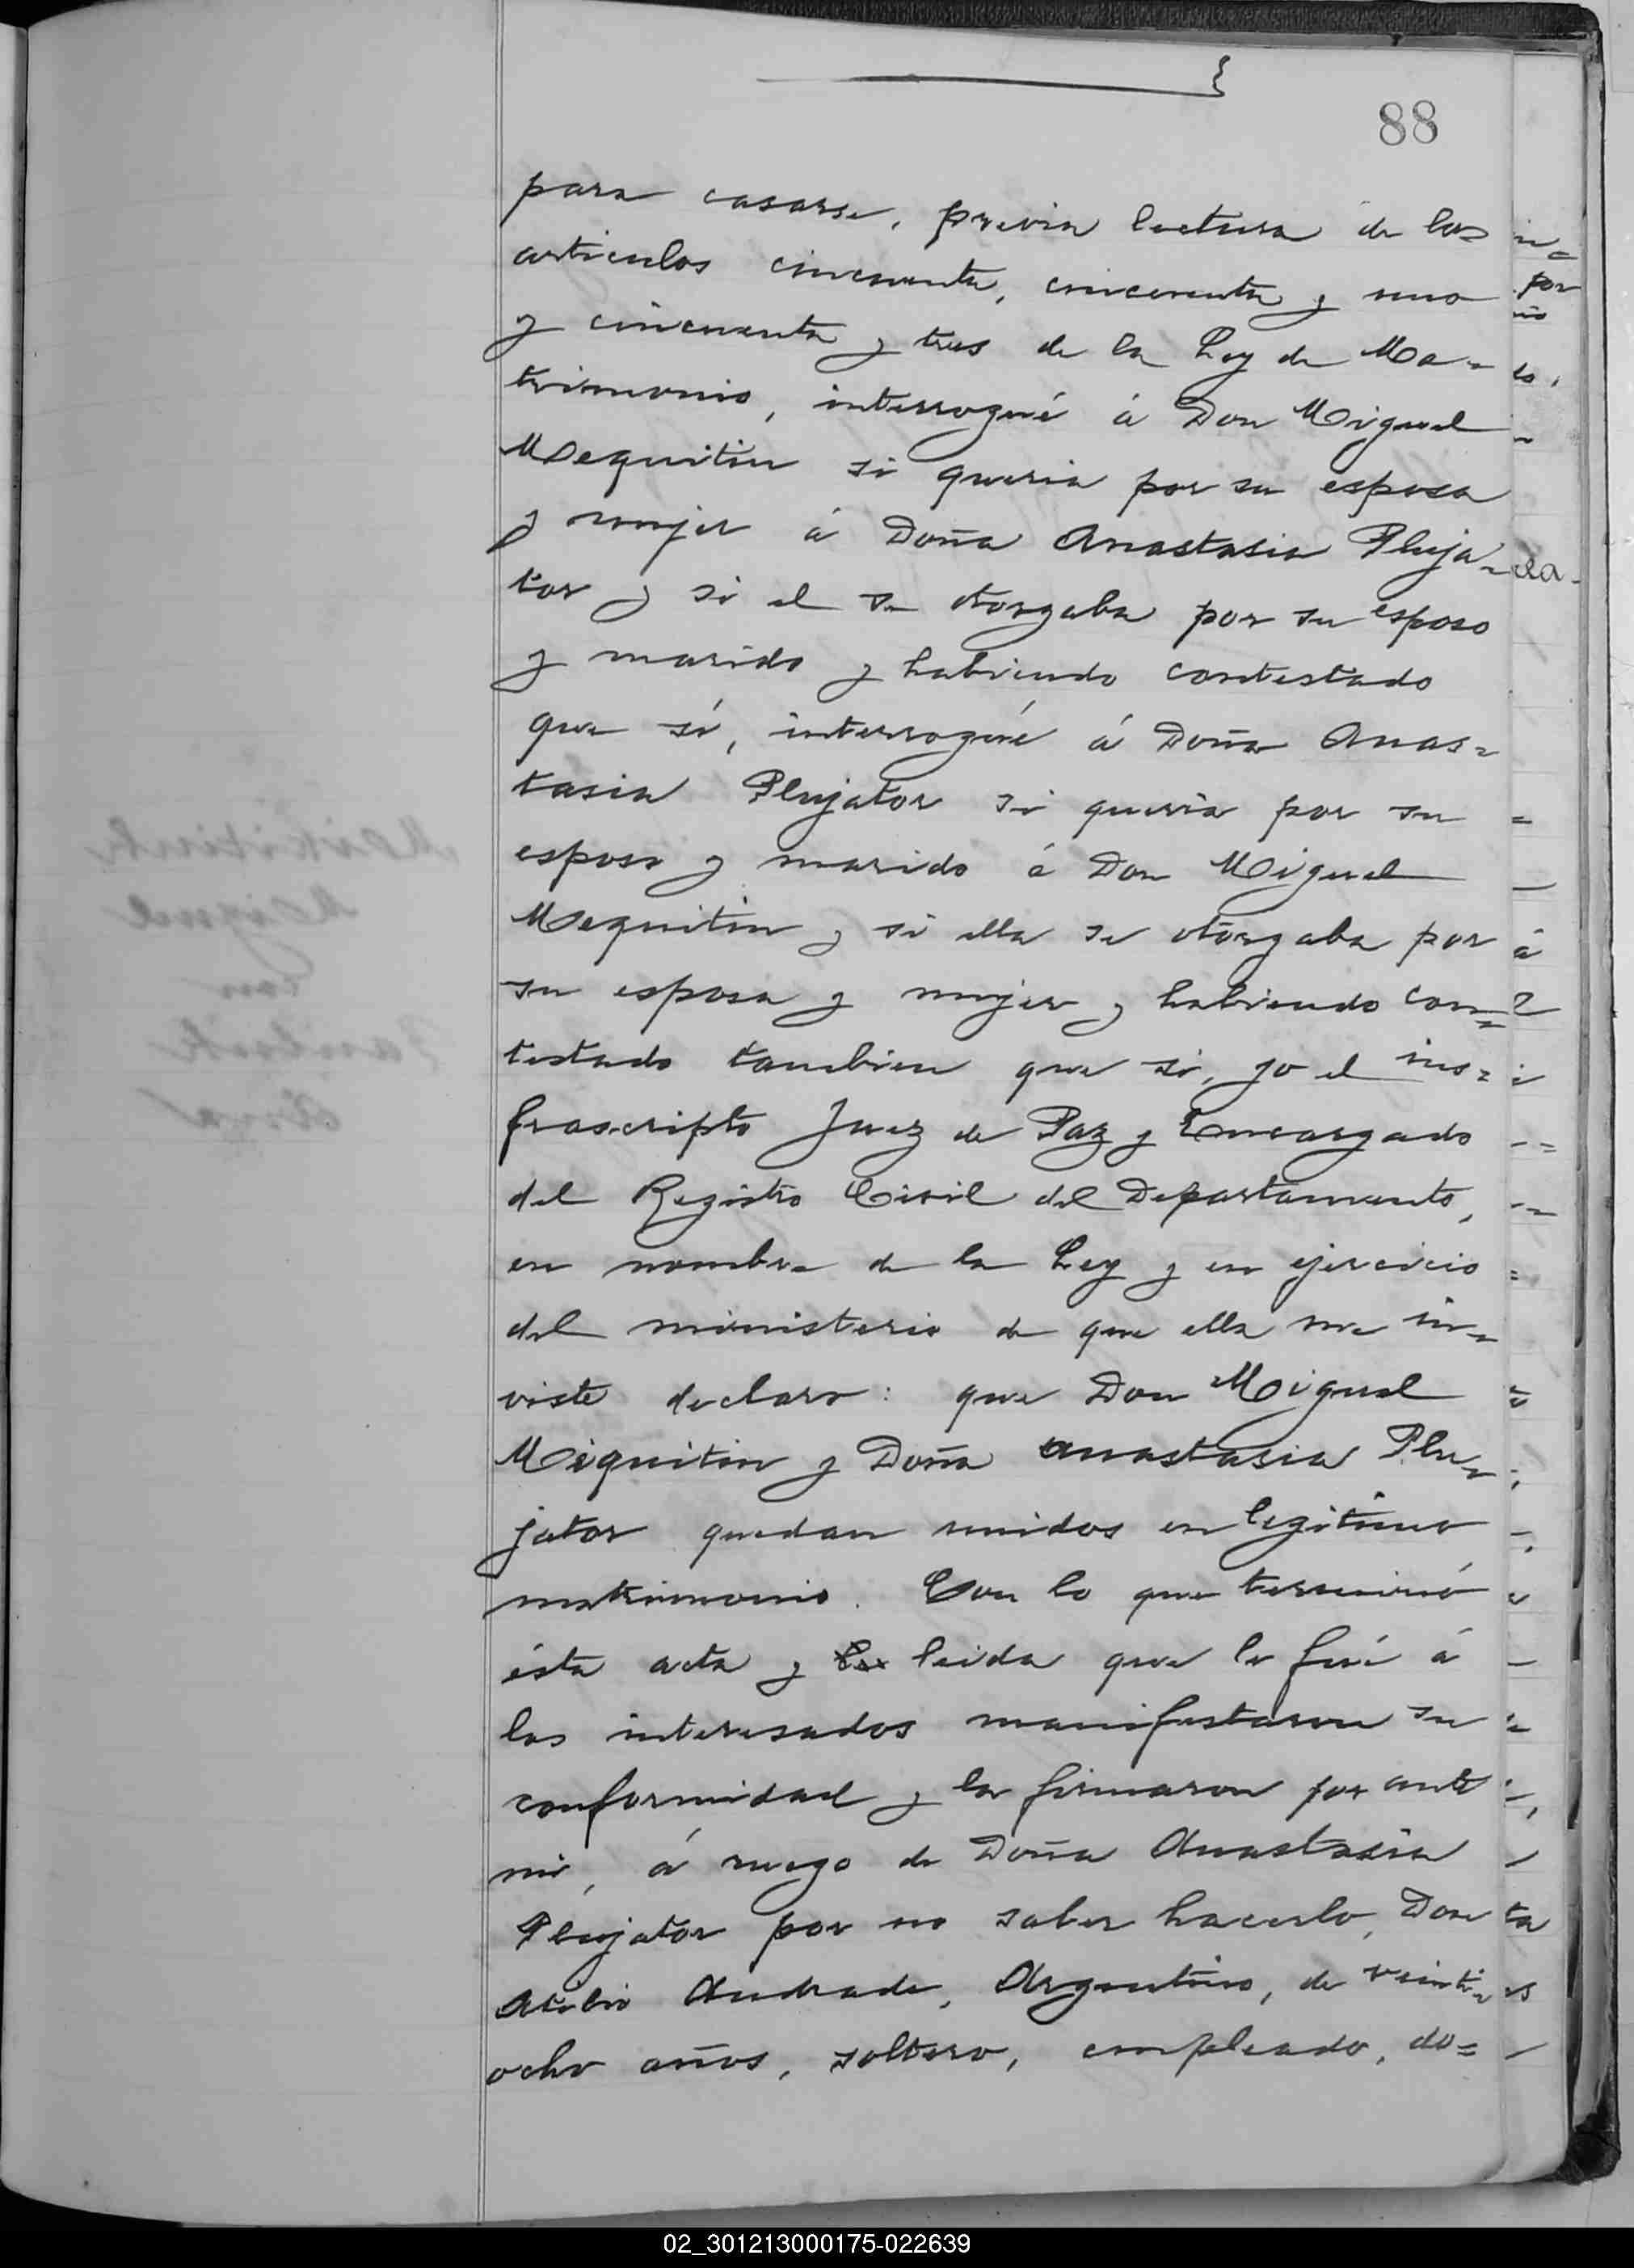 88
para casarse, previa lectura de los
articulos cincuenta, cincuenta y uno
y cincuenta y tres de la Ley de Ma-
trimonio, interrogué á Don Miguel
Mequitin si queria por su esposa
y mujer á Doña Anastasia Pluja=
tor y si el se otorgaba por su esposo
y marido y habiendo contestado
que sí, interrogué á Doña Anas=
tasia Plujator si queria por su
esposo y marido á Don Miguel
Mequitin y si ella se otorgaba por
su esposa y mujer y habiendo con=
testado tambien que si, yo el ins=
frascripto Juez de Paz y Encargado
del Registro Civil del Departamento,
en nombre de la Ley y en ejercicio
del ministerio de que ella me in=
viste declaro: que Don Miguel
Miquitin y Doña Anastasia Plu=
jator quedan unidos en legitimo
matrimonio. Con lo que terminó
ésta acta y leida que le fué á
los interesados manifestaron su
conformidad y la firmaron por ante
mi, á ruego de Doña Anastasia
Plujator por no saber hacerlo, Don
Atilio Andrade, Argentino, de veinti=
ocho años, soltero, empleado, do=
02_301213000175-022639